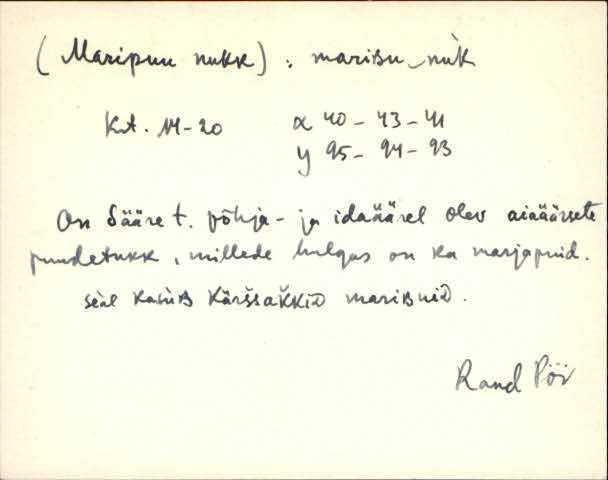 (Maripuu nukk) : mariʙu nuk̀
Kt. M-20 x 40 - 43 - 41
y 95 - 94 - 93
On Sääre t. põhja- ja idaäärel olev aiaäärsete
puudetukk, millede hulgas on ka marjapuid.
seäl kasùʙ kär̆šsak̆kiᴅ mariʙuiᴅ.
Rand Pöi